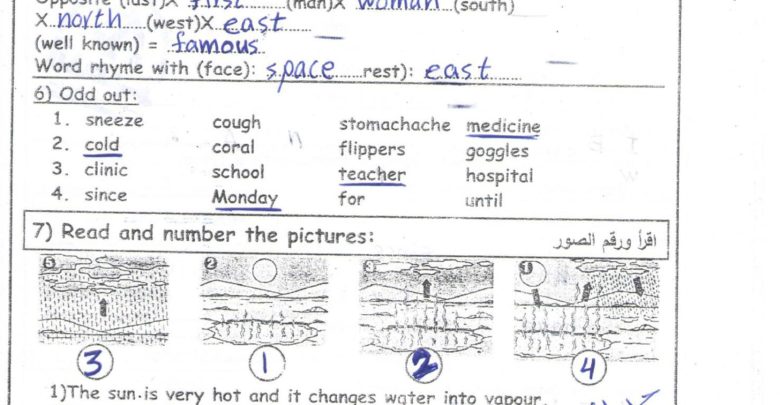 Opposite (last)X first..........(man)X woman...(south)
X..north.....(west)X east............
(well known) = famous..
Word rhyme with (face): space......rest): east.......
6) Odd out:
1. sneeze cough stomachache medicine
2. cold coral flippers goggles
3. clinic school teacher hospital
4. since Monday for until
7) Read and number the pictures: اقرأ ورقم الصور
3 1 2 4
1)The sun is very hot and it changes water into vapour.